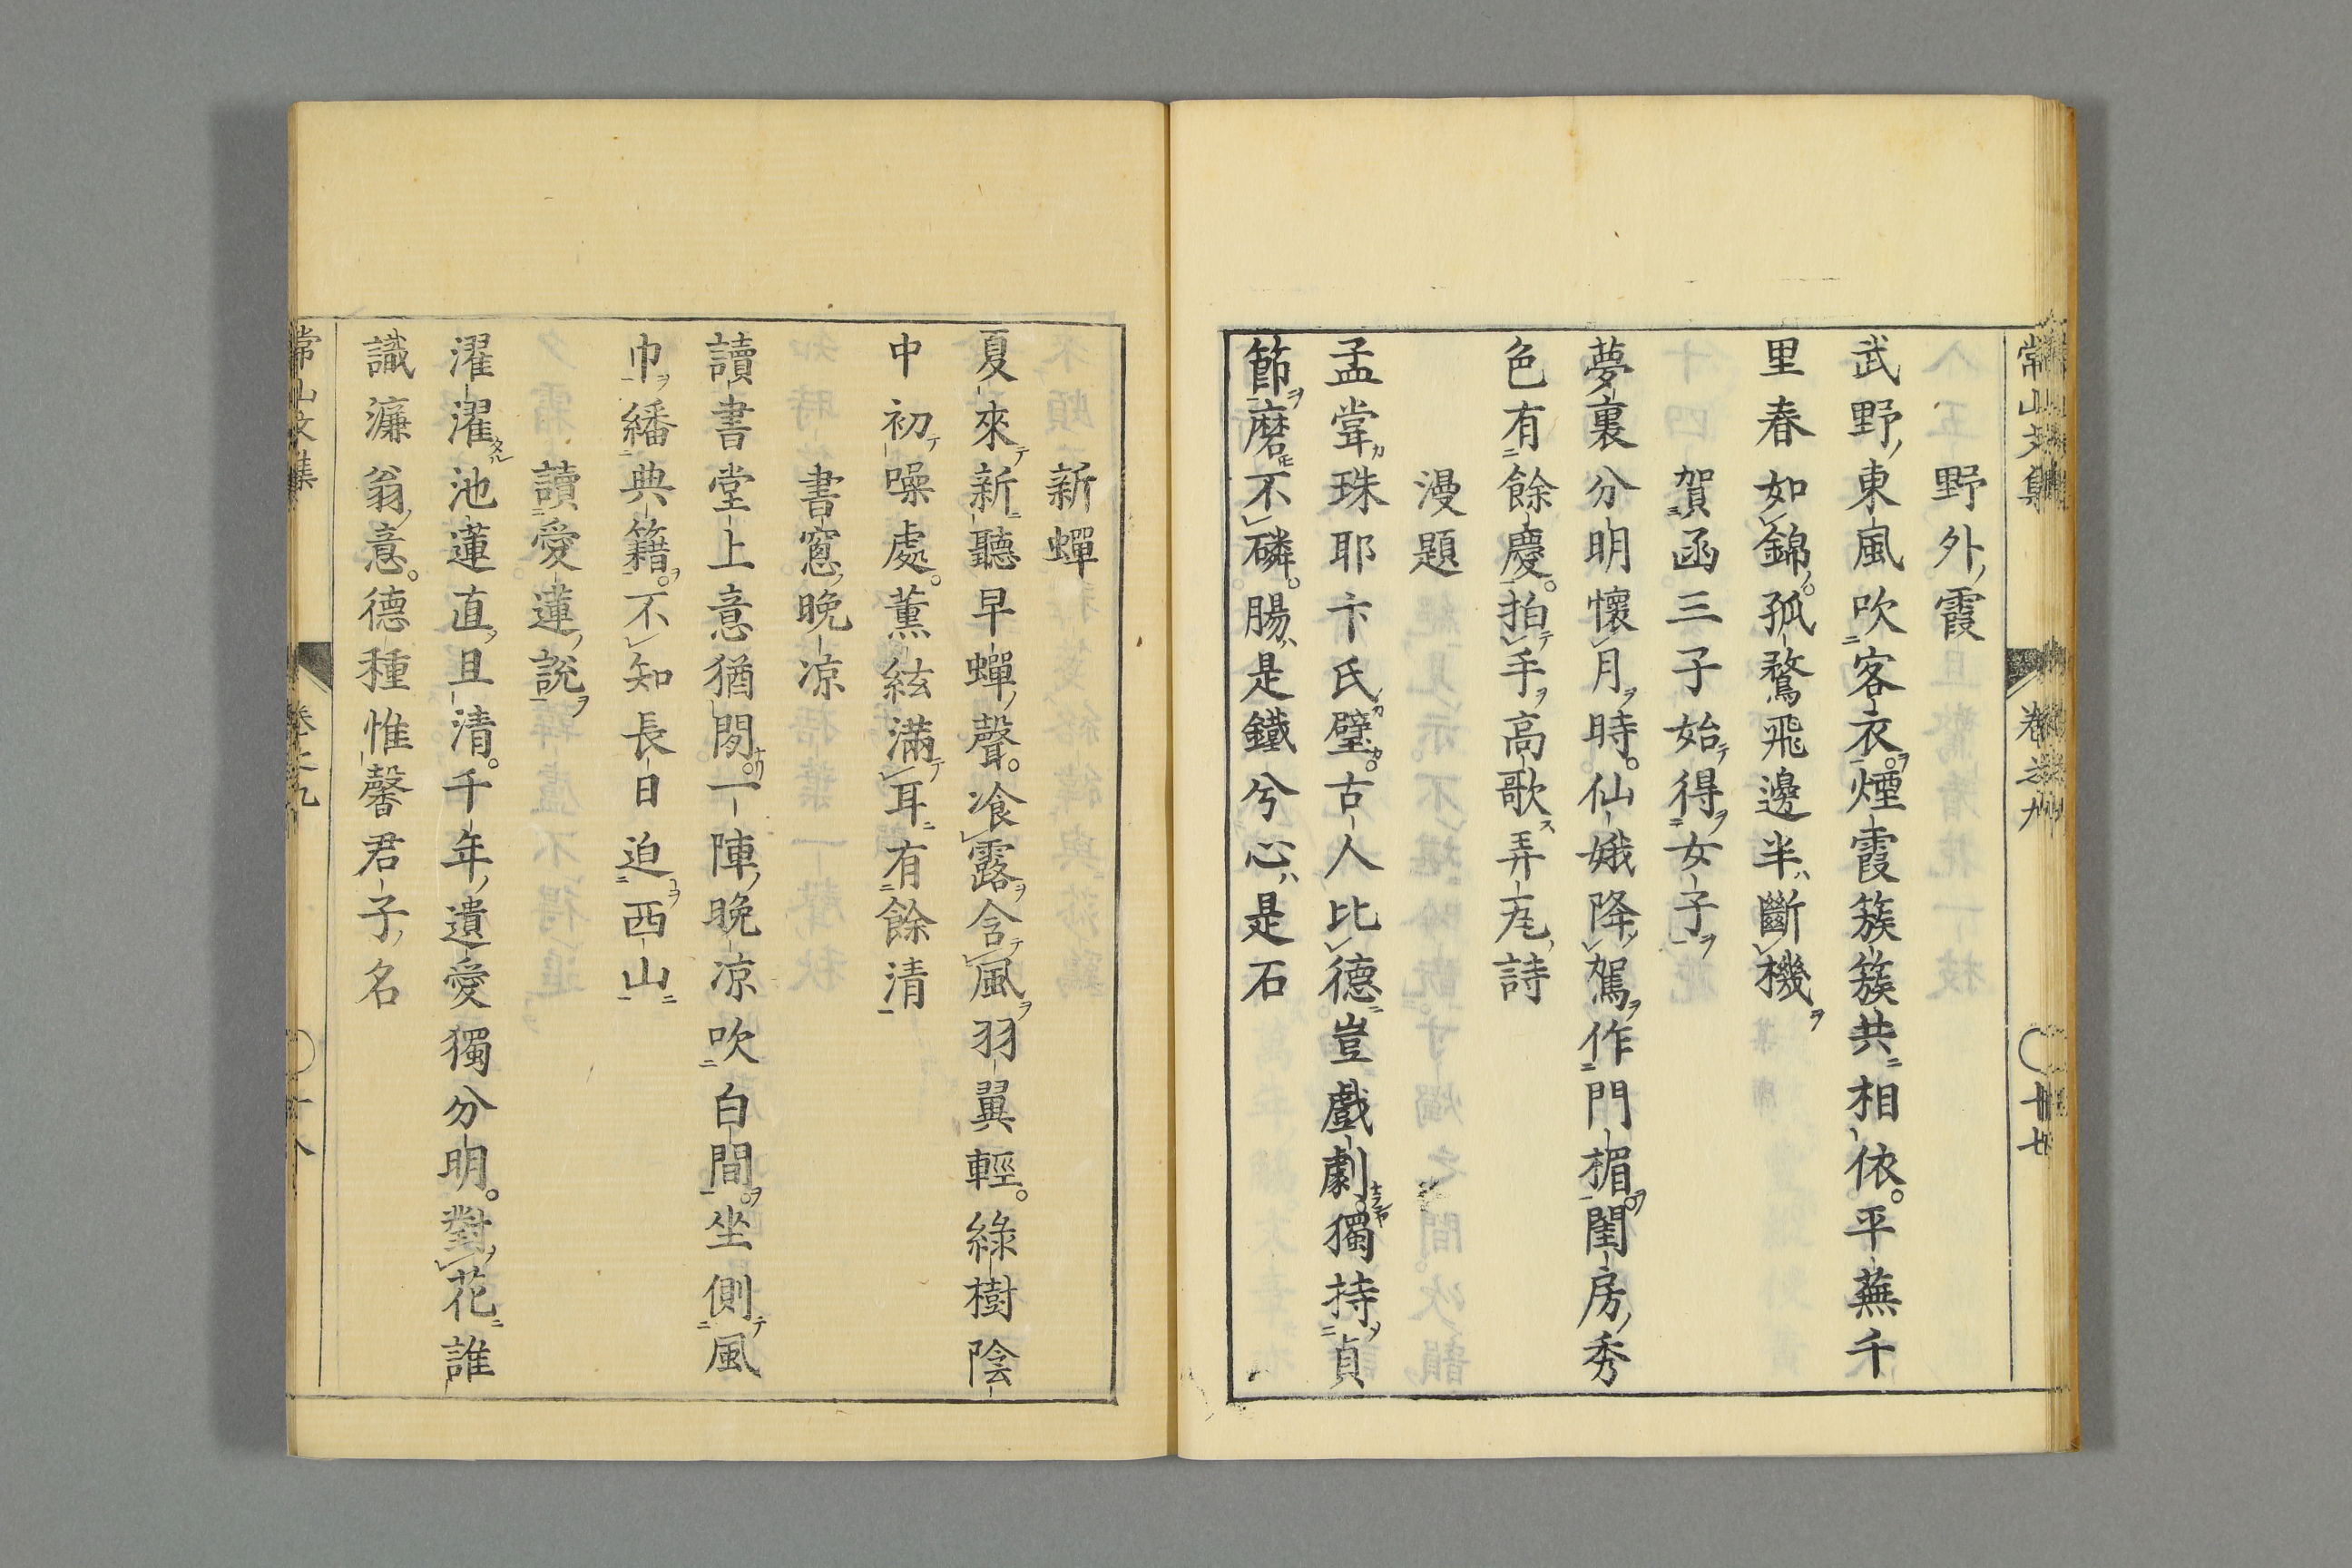 野外霞
武野東風吹客衣煙霞簇簇共相依平蕪千
里春如錦孤鶩飛邊半斷機
賀函三子始得女子
夢裏分明懷月時仙娥降駕作門楣閨房秀
色有餘慶拍手高歌弄瓦詩
漫題
孟甞珠耶卞氏璧古人比德豈戲劇獨持貞
節磨不磷腸是鐵兮心是石
常山文集
卷之九
十七
新蟬
夏來新聽早蟬聲飡露含風羽翼輕綠樹陰
中初噪處薰絃滿耳有餘清
書窓晚凉
讀書堂上意猶閑一陣晚凉吹白間坐側風
巾繙典籍不知長日迫西山
讀愛蓮說
濯濯池蓮直且清千年遺愛獨分明對花誰
識濂翁意德種惟馨君子名
常山文集
卷之九
十八